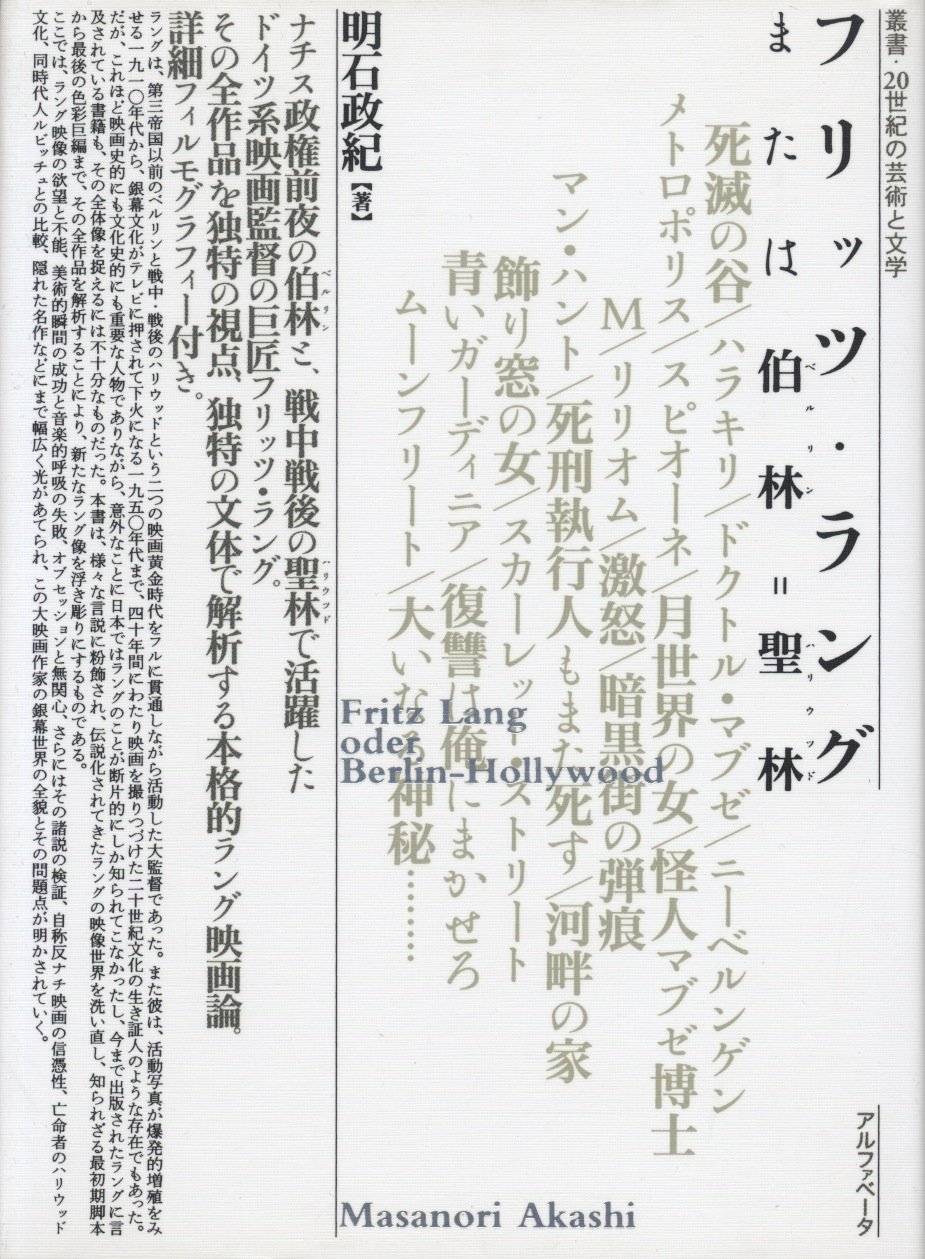 叢書・20世紀の芸術と文学
フリッツ・ラング
または伯林=聖林
ベルリン
ハリウッド
死滅の谷/ハラキリ/ドクトル・マブゼ/ニーベルンゲン
メトロポリス/スピオーネ/月世界の女/怪人マブゼ博士
M/リリオム/激怒/暗黒街の弾痕
マン・ハント/死刑執行人もまた死す/河畔の家
飾り窓の女/スカーレット・ストリート
青いガーディニア/復讐は俺にまかせろ
ムーンフリート/大いなる神秘………
Fritz Lang
oder
Berlin-Hollywood
アルファベータ
Masanori Akashi
明石政紀【著】
ナチス政権前夜の伯林と、戦中戦後の聖林で活躍した
ベルリン
ハリウッド
ドイツ系映画監督の巨匠フリッツ・ラング。
その全作品を独特の視点、独特の文体で解析する本格的ラング映画論。
詳細フィルモグラフィー付き。
ラングは、第三帝国以前のベルリンと戦中・戦後のハリウッドという二つの映画黄金時代をフルに貫通しながら活動した大監督であった。また彼は、活動写真が爆発的増殖をみ
せる一九一〇年代から、銀幕文化がテレビに押されて下火になる一九五〇年代まで、四十年間にわたり映画を撮りつづけた二十世紀文化の生き証人のような存在でもあった。
だが、これほど映画史的にも文化史的にも重要な人物でありながら、意外なことに日本ではラングのことが断片的にしか知られてこなかったし、今まで出版されたラングに言
及されている書籍も、その全体像を捉えるには不十分なものだった。本書は、様々な言説に粉飾され、伝説化されてきたラングの映像世界を洗い直し、知られざる最初期脚本
から最後の色彩巨編まで、その全作品を解析することにより、新たなラング像を浮き彫りにするものである。
ここでは、ラング映像の欲望と不能、美術的瞬間の成功と音楽的呼吸の失敗、オブセッションと無関心、さらにはその諸説の検証、自称反ナチ映画の信憑性、亡命者のハリウッド
文化、同時代人ルビッチュとの比較、隠れた名作などにまで幅広く光があてられ、この大映画作家の銀幕世界の全貌とその問題点が明かされていく。